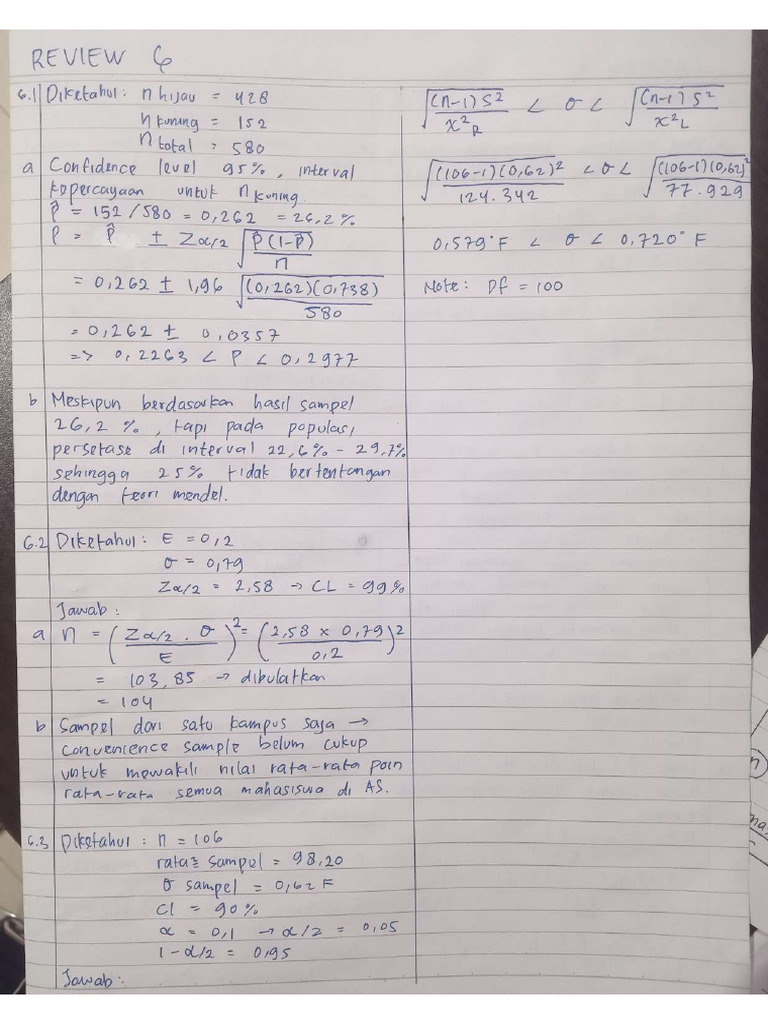 REVIEW 6
6.1 Diketahui : n hijau = 428
n kuning = 152
n total = 580
a Confidence level 95%, interval
kepercayaan untuk n kuning.
p̂ = 152 / 580 = 0,262 = 26,2 %
P = p̂ ± Zα/2 √(p̂(1-p̂)/n)
= 0,262 ± 1,96 √((0,262)(0,738)/580)
= 0,262 ± 0,0357
=> 0,2263 < P < 0,2977
b Meskipun berdasarkan hasil sampel
26,2 %, tapi pada populasi
persetase di interval 22,6% - 29,7%
sehingga 25% tidak bertentangan
dengan teori mendel.
6.2 Diketahui : E = 0,2
σ = 0,79
Zα/2 = 2,58 → CL = 99%
Jawab :
a n = (Zα/2 . σ / E)² = (2,58 x 0,79 / 0,2)²
= 103,85 → dibulatkan
= 104
b Sampel dari satu kampus saja →
convenience sample belum cukup
untuk mewakili nilai rata-rata poin
rata-rata semua mahasiswa di AS.
6.3 Diketahui : n = 106
rata² sampel = 98,20
σ sampel = 0,62 F
Cl = 90%
α = 0,1 → α/2 = 0,05
1 - α/2 = 0,95
Jawab :
√((n-1) S²/x²R) < σ < √((n-1) S²/x²L)
√((106-1)(0,62)²/124.342) < σ < √((106-1)(0,62)²/77.929)
0,579°F < σ < 0,720°F
Note : Df = 100